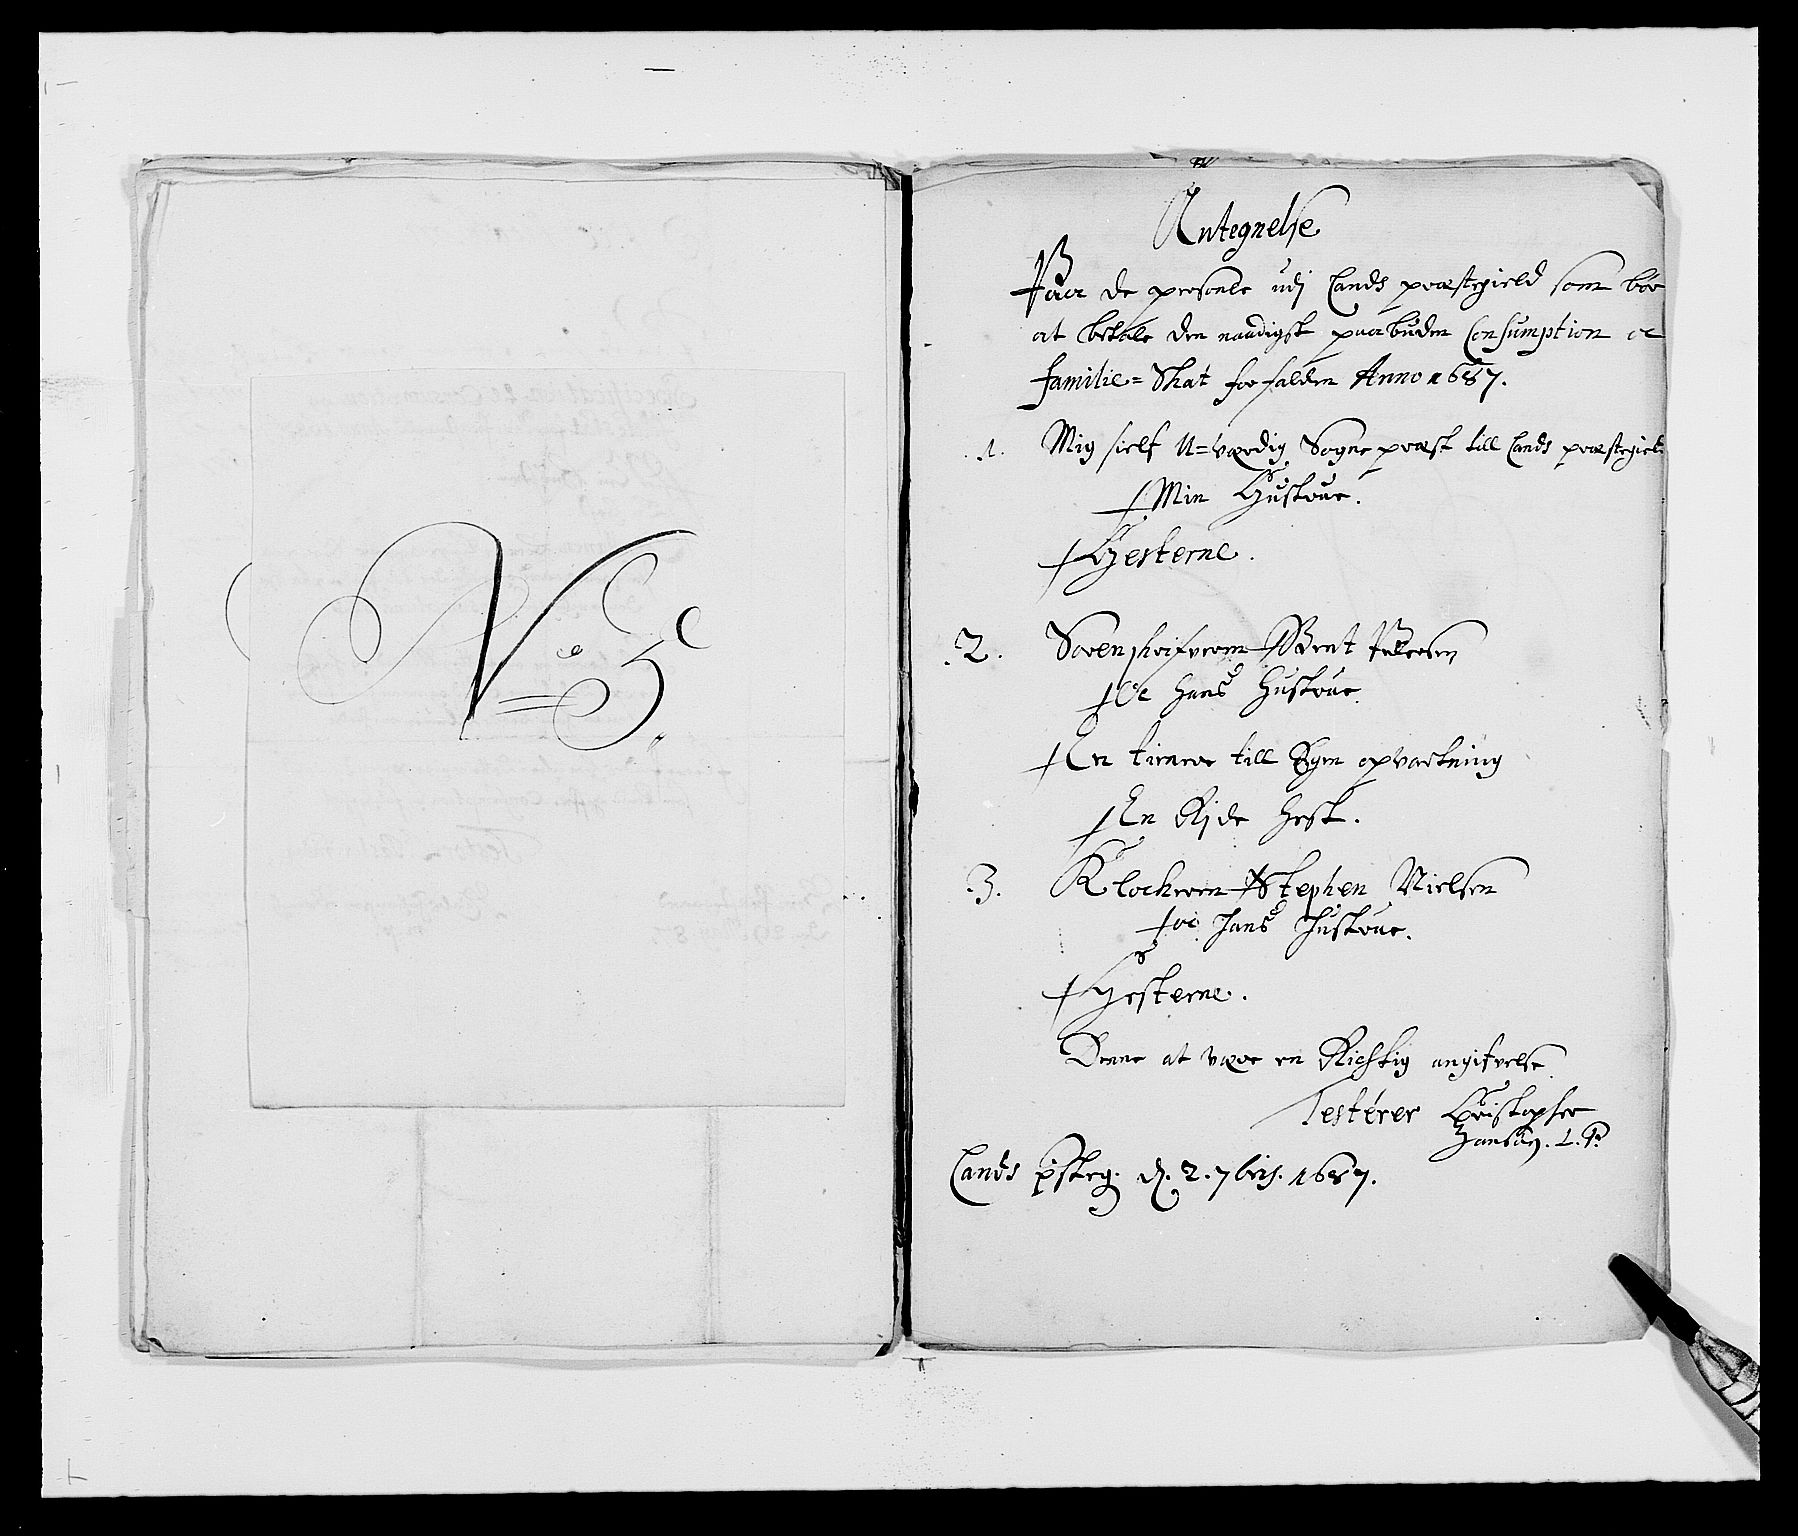 No 5
Antegnelse
Paa de persohle udj Lands præstegield som bør
at betale den naadigst paabuden Consumption oc
familie=Skat forfalden Anno 1687.
1. Mig sielf U=værdig Sognepræst till Lands præstegield
Min Hustrue.
Hesterne.
2. Sorenskrifveren Bent Pedersen
Oc Hans Hustrue
En tienere till Egen opvartning
En Ride Hest.
3. Klockeren Stephen Nielsen
oc Hans Hustrue.
Hesterne.
Denne at være en Richtig angifvelse
Testerer Christopher
Hansen. L. P.
Lands psteg. d. 2. 7bris. 1687.